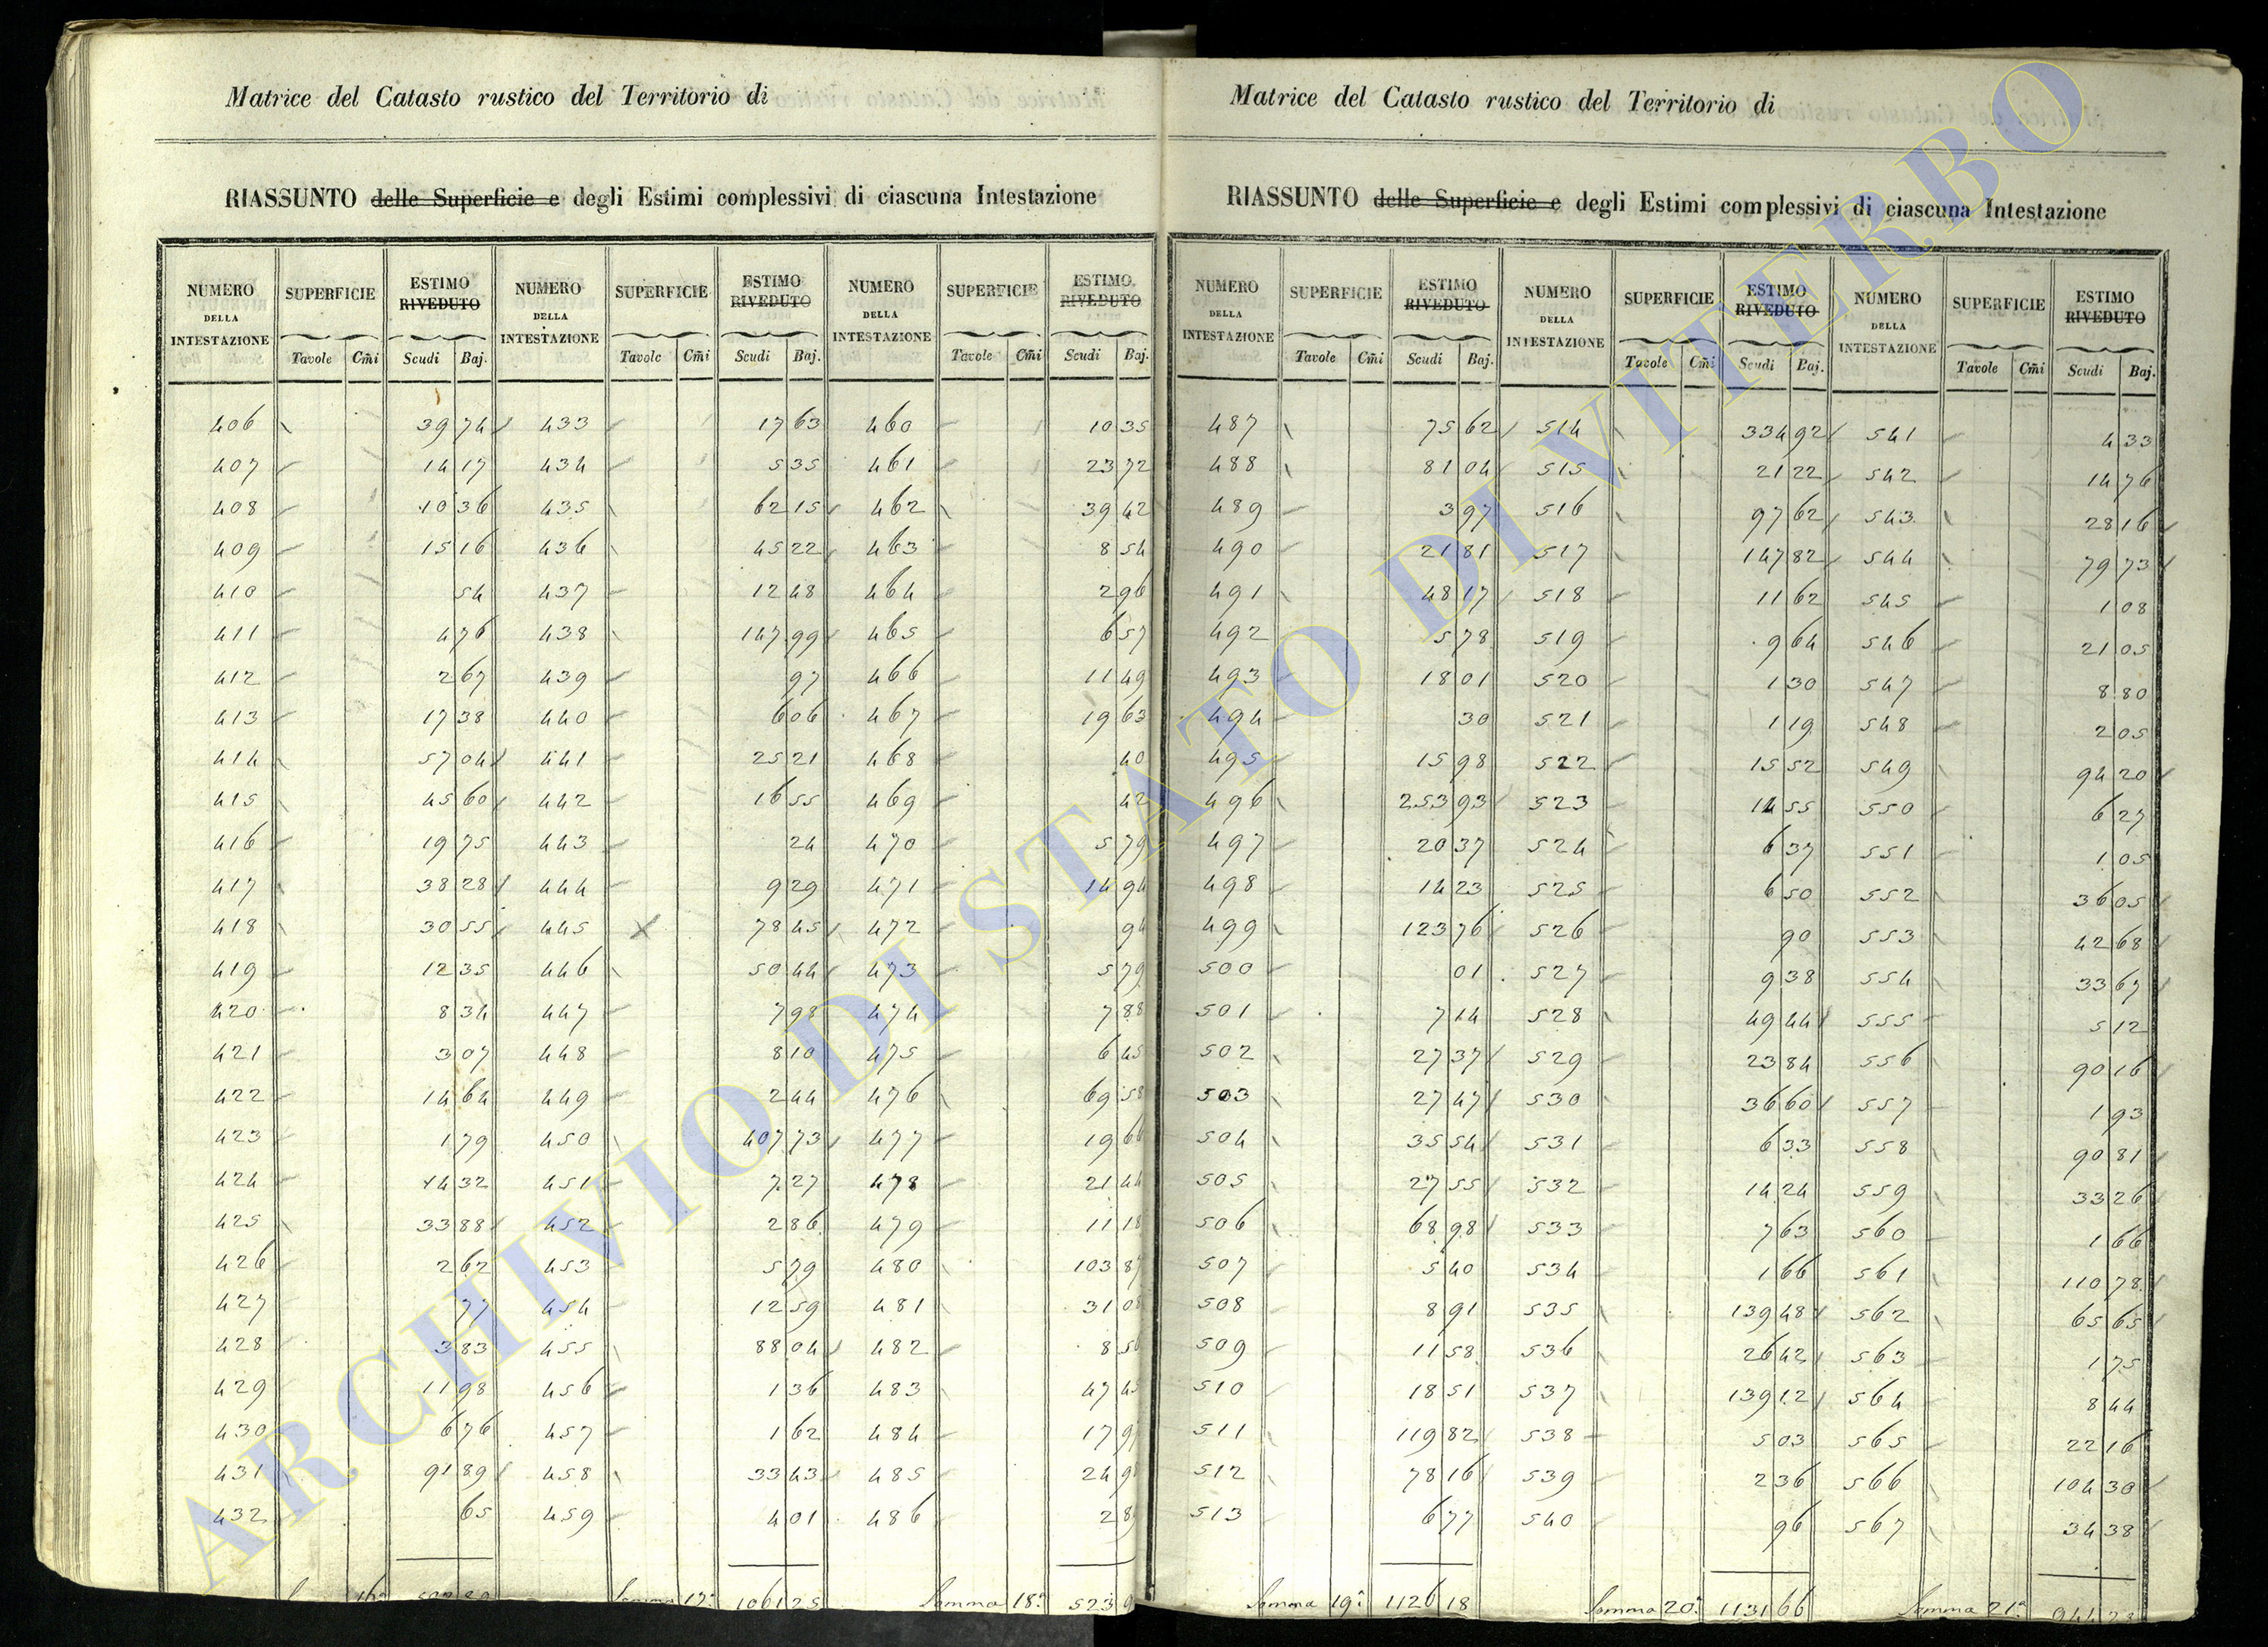 Matrice del Catasto rustico del Territorio di
RIASSUNTO delle Superficie e degli Estimi complessivi di ciascuna Intestazione
NUMERO DELLA INTESTAZIONE SUPERFICIE ESTIMO RIVEDUTO NUMERO DELLA INTESTAZIONE SUPERFICIE ESTIMO RIVEDUTO NUMERO DELLA INTESTAZIONE SUPERFICIE ESTIMO RIVEDUTO
Tavole Cm̃i Scudi Baj. Tavole Cm̃i Scudi Baj. Tavole Cm̃i Scudi Baj.
406 39 74 433 17 63 460 10 35
407 14 17 434 5 35 461 23 72
408 10 36 435 62 15 462 39 42
409 15 16 436 45 22 463 8 54
410 54 437 12 48 464 2 96
411 4 76 438 147 99 465 6 57
412 2 67 439 97 466 11 49
413 17 38 440 6 06 467 19 63
414 57 04 441 25 21 468 40
415 45 60 442 16 55 469 42
416 19 75 443 24 470 5 79
417 38 28 444 9 29 471 14 94
418 30 55 445 78 45 472 94
419 12 35 446 50 44 473 5 79
420 8 34 447 7 98 474 7 88
421 3 07 448 8 10 475 6 45
422 14 64 449 2 44 476 69 58
423 1 79 450 407 73 477 19 66
424 14 32 451 7 27 478 21 44
425 33 88 452 2 86 479 11 18
426 2 62 453 5 79 480 103 87
427 77 454 12 59 481 31
428 3 83 455 88 04 482 8
429 11 98 456 1 36 483 47
430 6 76 457 1 62 484 17
431 91 89 458 33 43 485 24
432 65 459 4 01 486 2
Somma 17ª 1061 25 Somma 18ª 523
Matrice del Catasto rustico del Territorio di
RIASSUNTO delle Superficie e degli Estimi complessivi di ciascuna Intestazione
NUMERO DELLA INTESTAZIONE SUPERFICIE ESTIMO RIVEDUTO NUMERO DELLA INTESTAZIONE SUPERFICIE ESTIMO RIVEDUTO NUMERO DELLA INTESTAZIONE SUPERFICIE ESTIMO RIVEDUTO
Tavole Cm̃i Scudi Baj. Tavole Cm̃i Scudi Baj. Tavole Cm̃i Scudi Baj.
487 75 62 514 334 92 541 4 33
488 81 04 515 21 22 542 14 76
489 3 97 516 97 62 543 28 16
490 21 81 517 147 82 544 79 73
491 48 17 518 11 62 545 1 08
492 5 78 519 9 64 546 21 05
493 18 01 520 1 30 547 8 80
494 30 521 1 19 548 2 05
495 15 98 522 15 52 549 94 20
496 253 93 523 14 55 550 6 27
497 20 37 524 6 37 551 1 05
498 14 23 525 6 50 552 36 05
499 123 76 526 90 553 42 68
500 01 527 9 38 554 33 67
501 7 14 528 49 44 555 5 12
502 27 37 529 23 84 556 90 16
503 27 47 530 36 60 557 1 93
504 35 54 531 6 33 558 90 81
505 27 55 532 14 24 559 33 26
506 68 98 533 7 63 560 1 66
507 5 40 534 1 66 561 110 78
508 8 91 535 139 48 562 65 65
509 11 58 536 26 42 563 1 75
510 18 51 537 139 12 564 8 44
511 119 82 538 5 03 565 22 16
512 78 16 539 2 36 566 104 30
513 6 77 540 96 567 34 38
Somma 19ª 1126 18 Somma 20ª 1131 66 Somma 21ª
ARCHIVIO DI STATO DI VITERBO